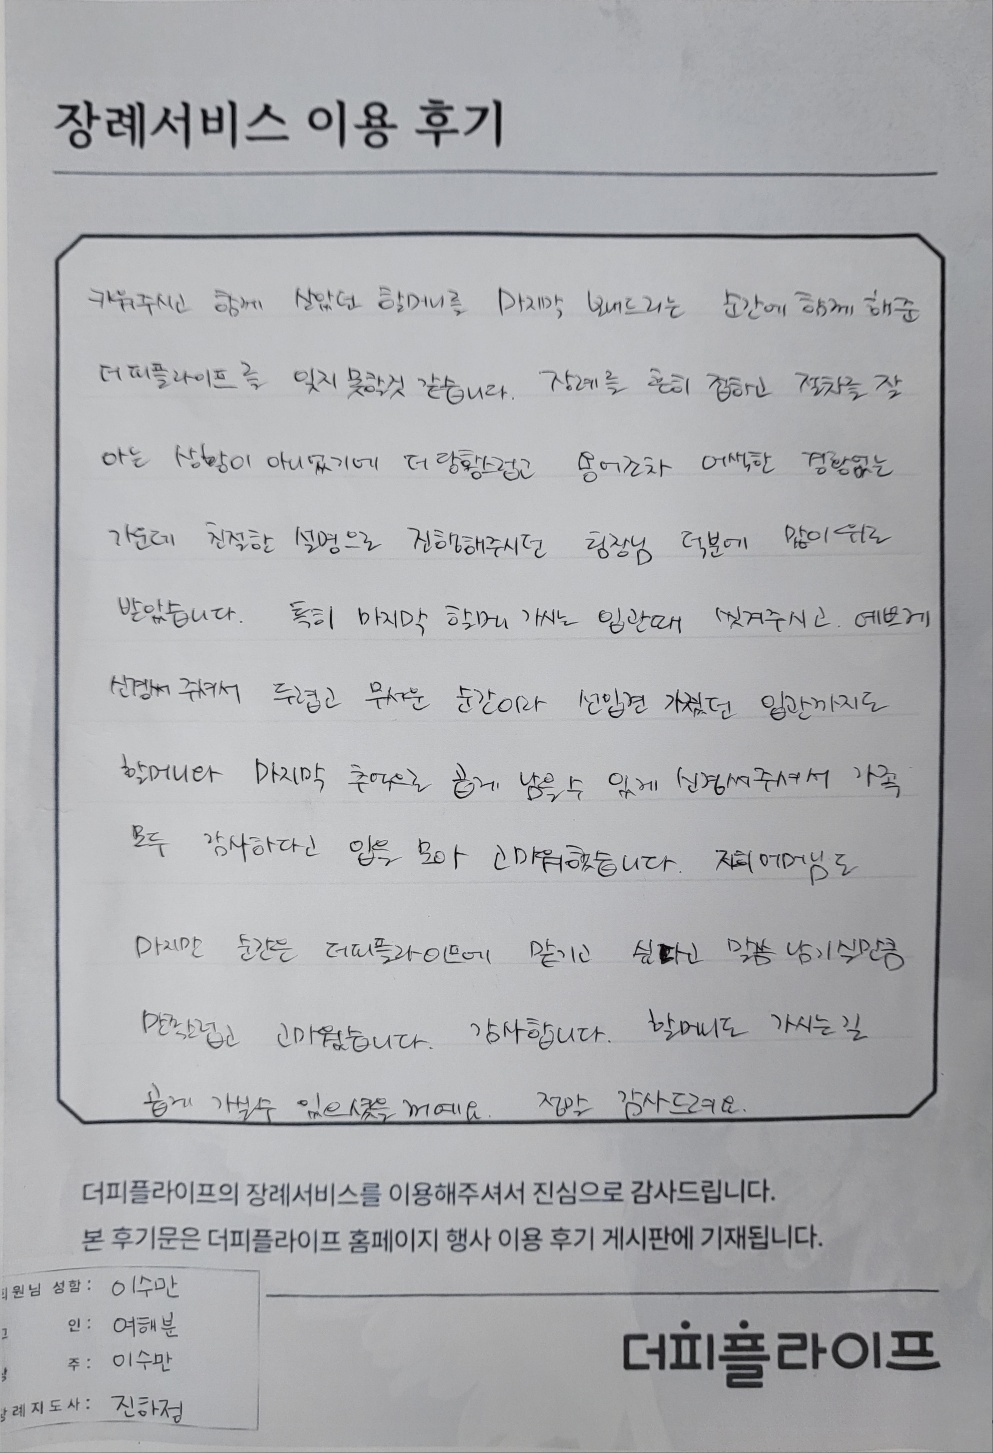 장례서비스 이용 후기
키워주시고 함께 살았던 할머니를 마지막 보내드리는 순간에 함께 해준
더피플라이프를 잊지 못할것 같습니다. 장례를 흔히 접하고 절차를 잘
아는 상황이 아니었기에 더 당황스럽고 용어조차 어색한 경황없는
가운데 친절한 설명으로 진행해주시던 팀장님 덕분에 많이 위로
받았습니다. 특히 마지막 할머니 가시는 입관때 씻겨주시고. 예쁘게
신경써 주셔서 두렵고 무서운 순간이라 선입견 가졌던 입관까지도
할머니와 마지막 추억으로 곱게 남을수 있게 신경써주셔서 가족
모두 감사하다고 입을 모아 고마워했습니다. 저희어머님도
마지막 순간은 더피플라이프에 맡기고 싶다고 말씀 남기실만큼
만족스럽고 고마웠습니다. 감사합니다. 할머니도 가시는길
곱게 가실수 있으셨을꺼예요. 정말 감사드려요.
더피플라이프의 장례서비스를 이용해주셔서 진심으로 감사드립니다.
본 후기문은 더피플라이프 홈페이지 행사 이용 후기 게시판에 기재됩니다.
회원님 성함: 이수만
고 인: 여해분
상 주: 이수만
장례지도사: 진하정
더피플라이프